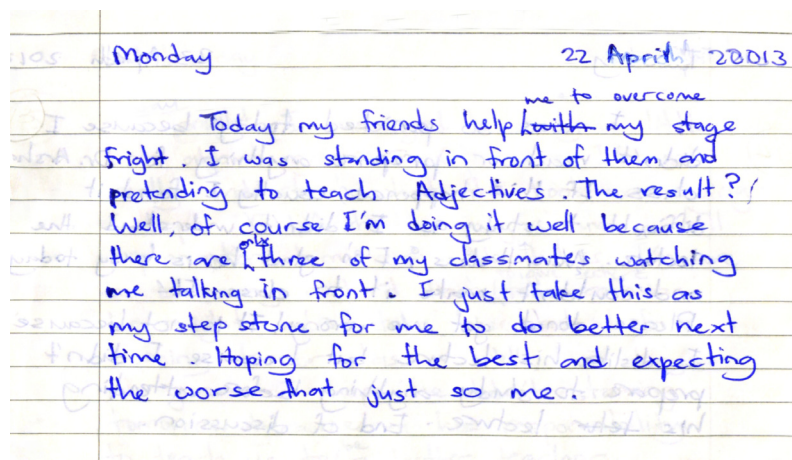 Monday 22 April 20013
me to overcome
Today my friends help with my stage
fright. I was standing in front of them and
pretending to teach Adjectives. The result?!
Well, of course I'm doing it well because
only
there are three of my classmates watching
me talking in front. I just take this as
my step stone for me to do better next
time. Hoping for the best and expecting
the worse that just so me.